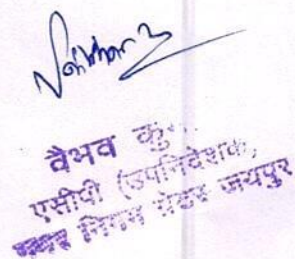 वैभव कु
एसीपी (उपनिदेशक)
नगर निगम ग्रेटर जयपुर